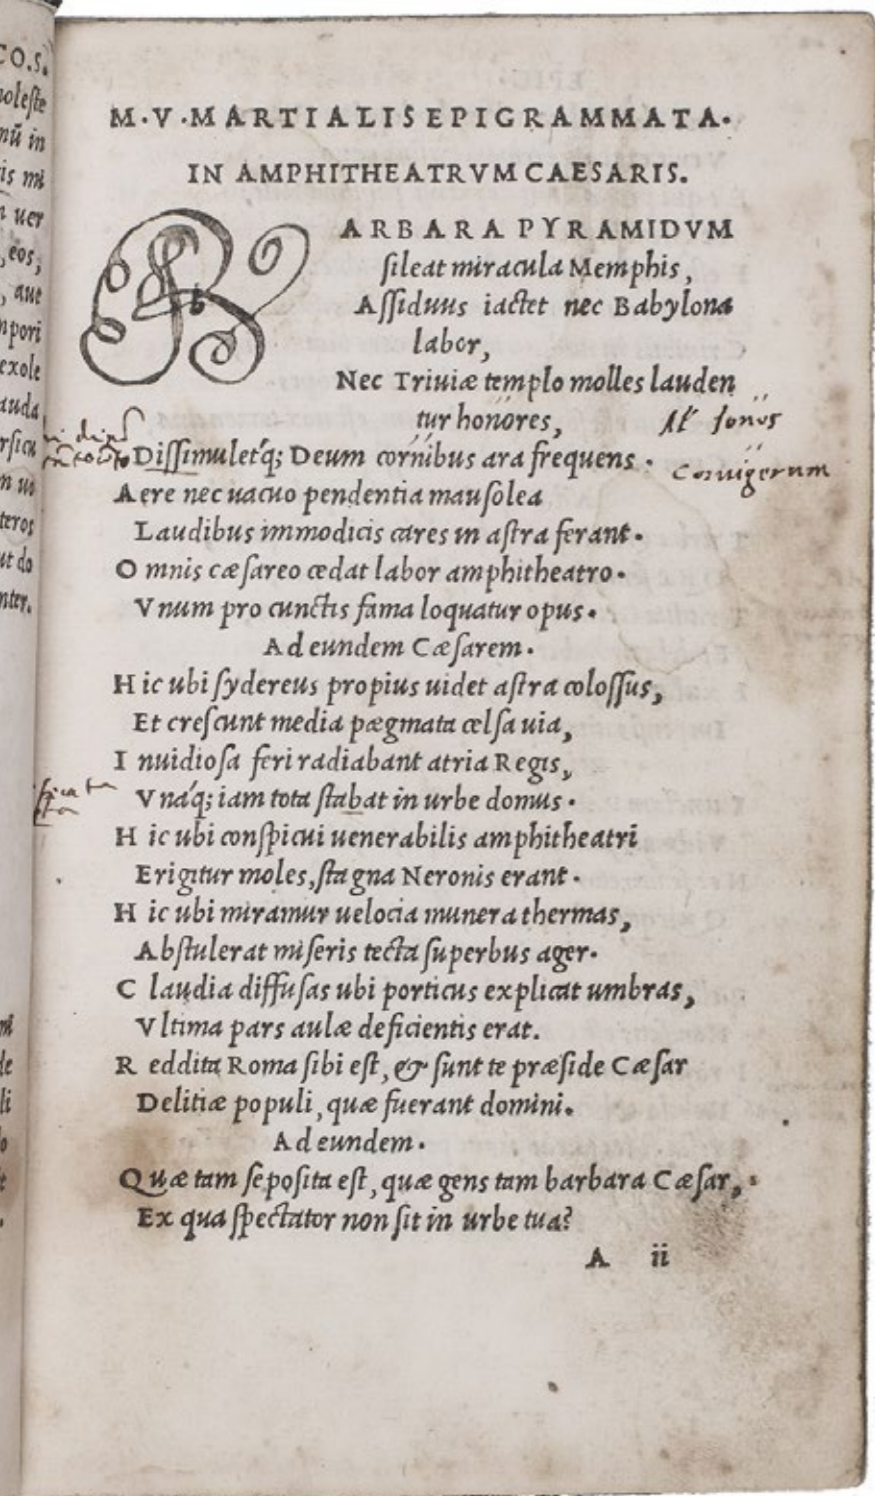 M.V.MARTIALIS EPIGRAMMATA.
IN AMPHITHEATRVM CAESARIS.
BARBARA PYRAMIDVM
ſileat miracula Memphis,
Aſſiduus iactet nec Babylona
labor,
Nec Triuiæ templo molles lauden
tur honores,
Al' Ionus
Diſſimulet'q; Deum cornibus ara frequens.
Cornigerum
Aere nec uacuo pendentia mauſolea
Laudibus immodicis cares in aſtra ferant.
O mnis cæſareo cedat labor amphitheatro.
V num pro cunctis fama loquatur opus.
Ad eundem Cæſarem.
H ic ubi ſydereus propius uidet aſtra coloſſus,
Et creſcunt media pægmata celſa uia,
I nuidioſa feri radiabant atria Regis,
V na'q; iam tota ſtabat in urbe domus.
H ic ubi conſpicui uenerabilis amphitheatri
Erigitur moles, ſtagna Neronis erant.
H ic ubi miramur uelocia munera thermas,
Abſtulerat miſeris tecta ſuperbus ager.
C laudia diffuſas ubi porticus explicat umbras,
V ltima pars aulæ deficientis erat.
R eddita Roma ſibi eſt, & ſunt te præſide Cæſar
Delitiæ populi, quæ fuerant domini.
Ad eundem.
Quæ tam ſepoſita eſt, quæ gens tam barbara Cæſar,
Ex qua ſpectator non ſit in urbe tua?
A ii